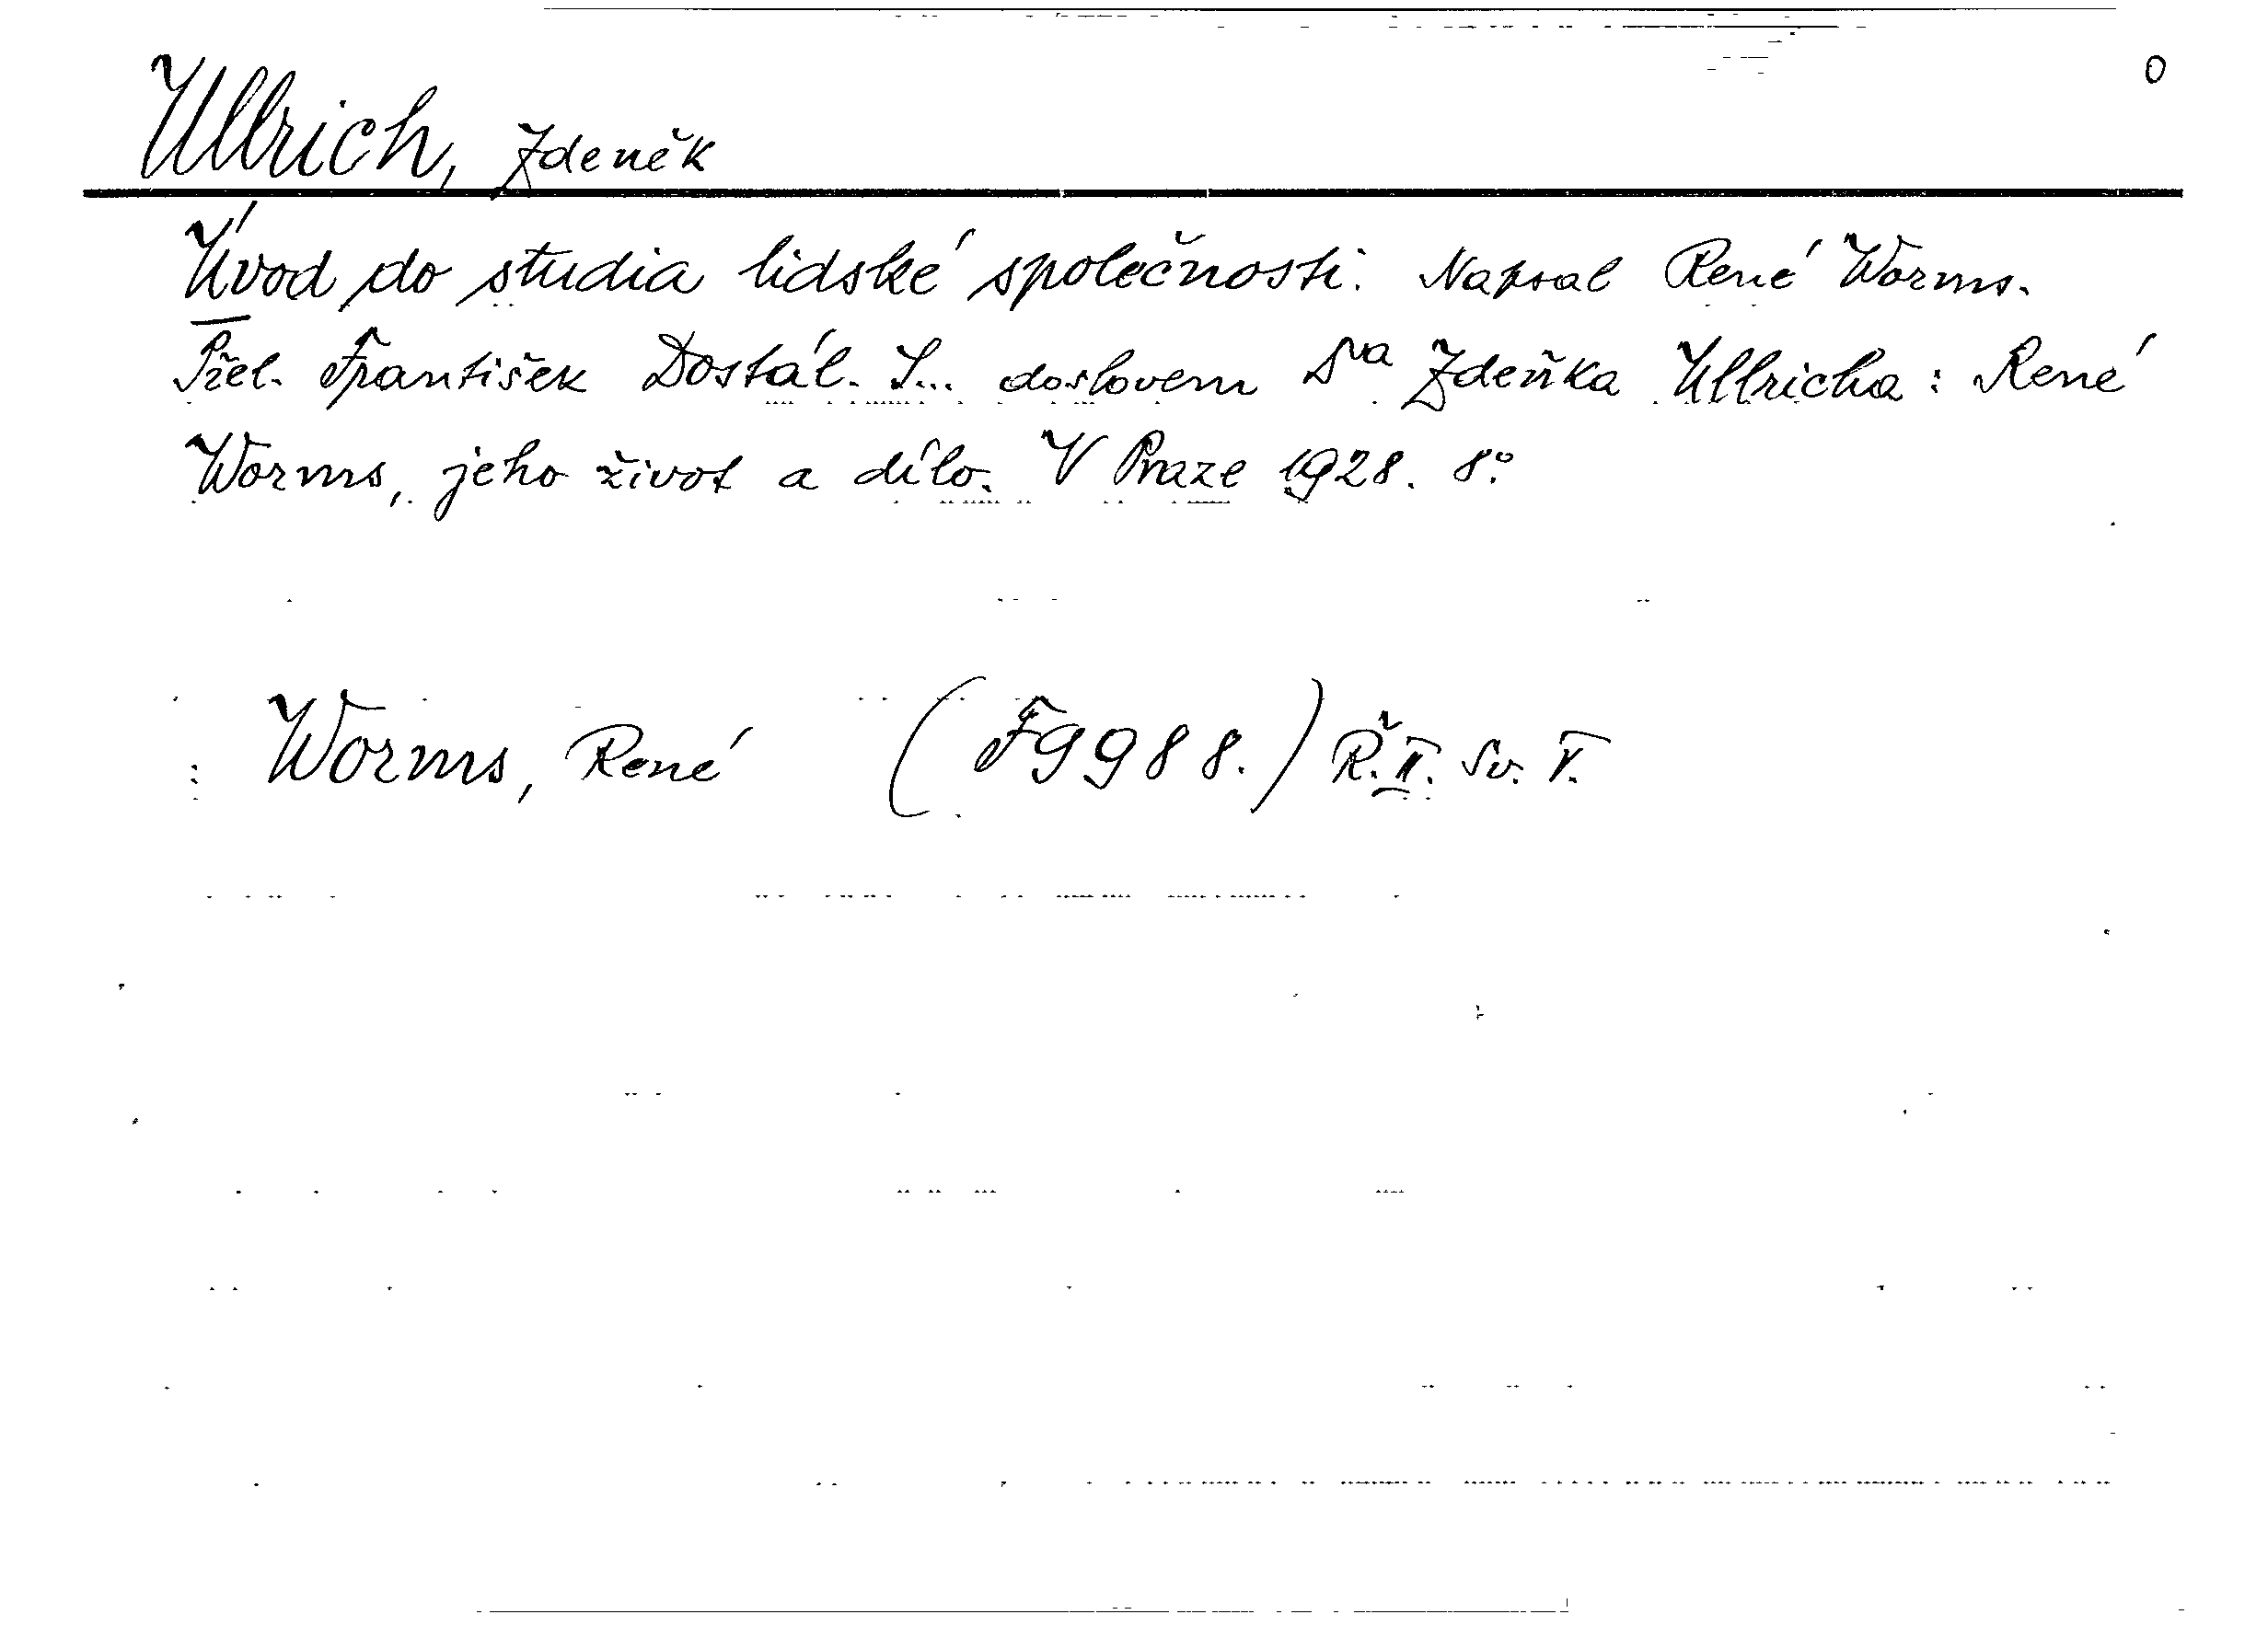 0
Ullrich, Zdeněk
Úvod do studia lidské společnosti. Napsal René Worms.
Přel. František Dostál. S... doslovem Dra Zdeňka Ullricha: René
Worms, jeho život a dílo. V Praze 1928. 8°.
Worms, René (F 9988.) Ř. II. Sv. V.